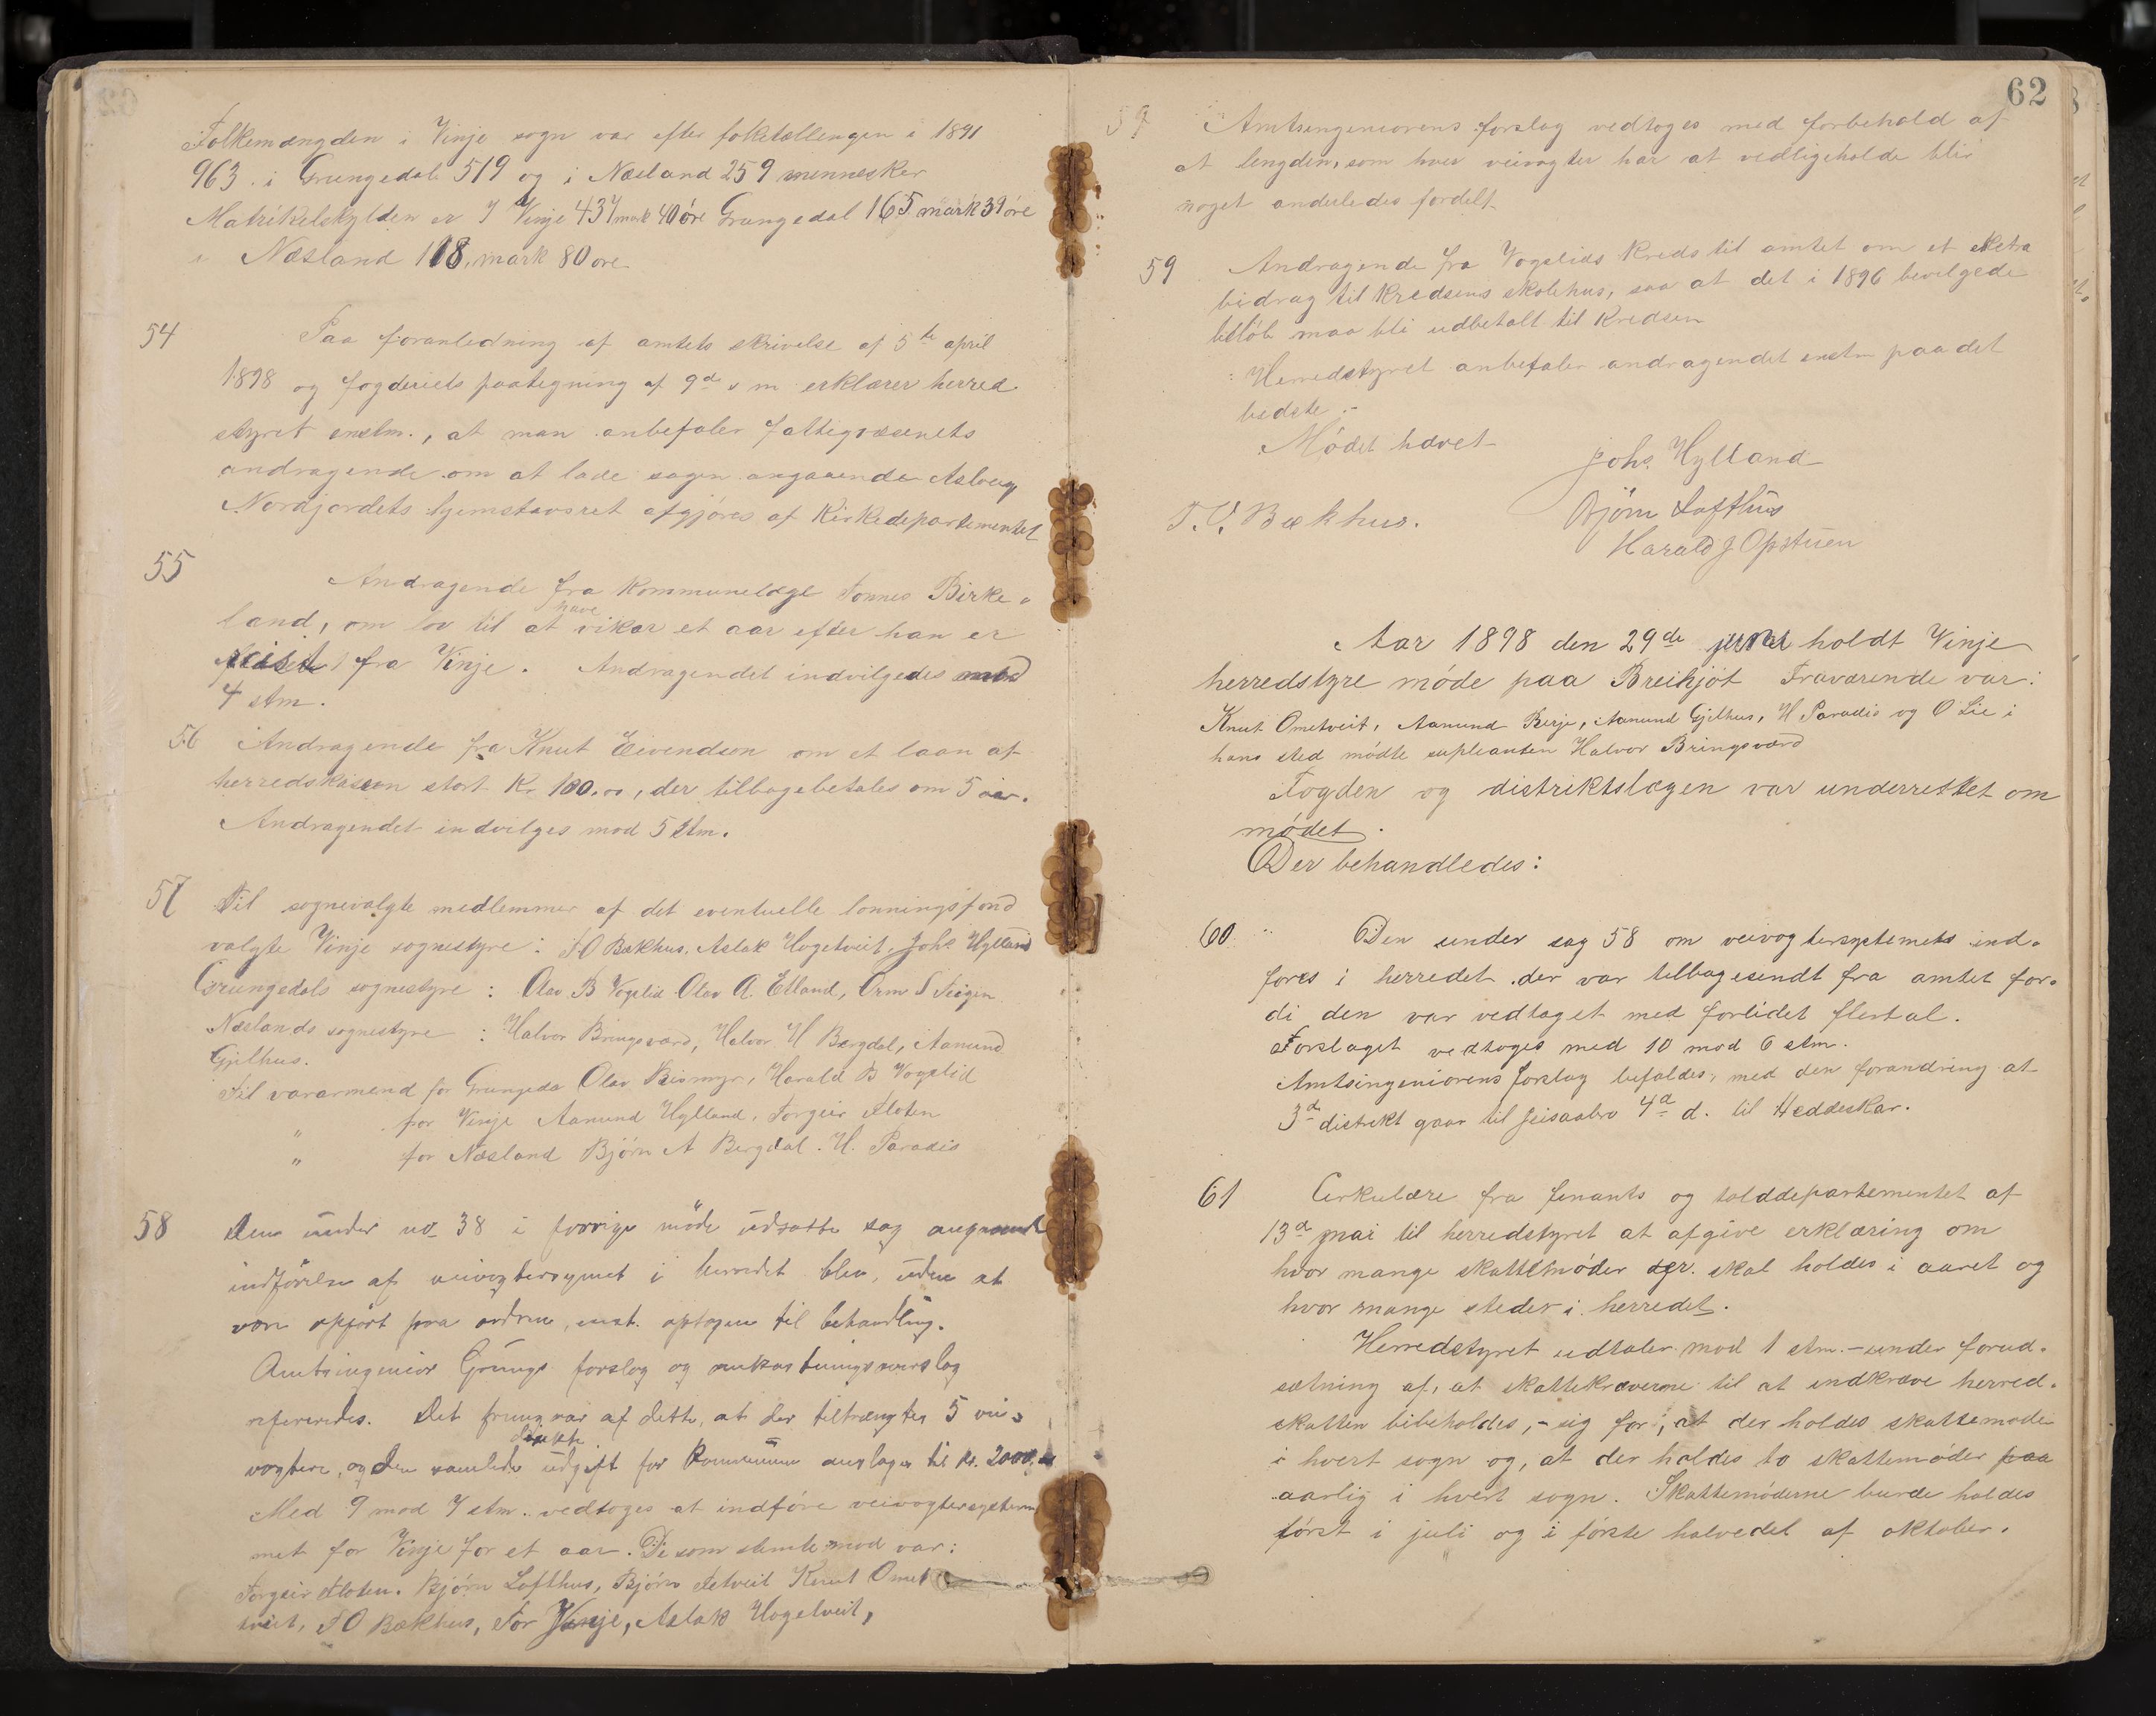 Folkemængden i Vinje sogn var efter foketællengen i 1891
963. i Grungedal 519 og i Næsland 259 mennesker
Matrikelskylden er I Vinje 437 mark 40 öre Grungedal 165 mark 39 öre
i Næsland 118, mark 80 öre
54 Paa foranledning af amtets skrivelse af 5te april
1898 og fogderiets paategning af 9d s m erklærer herred-
styret enstm., at man anbefaler fattigvæsenets
andragende om at lade sagen angaaende Aslaug
Nordjordets hjemstavsret afgjöres af Kirkedepartementet
55 Andragende fra Kommunelæge Tonnes Birke-
land, om lov til at have vikar et aar efter han er
reist fra Vinje. Andragendet indvilgedes mod
4 stm.
56 Andragende fra Knut Eivendson om et laan af
herredskassen stort Kr 100.00, der tilbagebetales om 5 aar.
Andragendet indvilges mod 5 stm.
57 Til sognevalgte medlemmer af det eventuelle lonningsfond
valgte Vinje sognestyre: T O Bækhus, Aslak Hogetveit, Johs Hylland
Grungedals sognestyre: Olav B Vogslid Olav A. Edland, Orm S
Næslands sognestyre: Halvor Bringsværd, Halvor H Bergdal, Aamund
Gjelhus.
Til vararmænd for Grungeda Olav, Harald B Vogslid
" for Vinje Aamund Hylland, Torgeir Floten
" for Næsland Björn A Bergdal. H. Paradis
58 Den under no 38 i forrige möde udsatte sag angaaende
indförelse af veivogtersysmet i herredet blev, uden at
være opfört paa ordren, enst. optagen til behandling.
Amtsingeniör Grungs forslag og omkostningsoverslag
refereredes. Det fremgaar af dette, at der tiltrænges 5 vei-
vogtere, og den samlede direkte udgift for Kommunen anslages til Kr. 2000,
Med 9 mod 7 stm. vedtoges at indföre veivogtersystem
met for Vinje for et aar. De som stemte mod var:
Torgeir Floten. Björn Lofthus, Björn Knut Omet
tveit, T O Bækhus, Tor Vinje, Aslak Hogetveit,
62
Amtsingeniorens forslag vedtoges med forbehold af
at lengden, som hver veivogter har at vedligeholde blir
noget anderledes fordelt
59 Andragende fra Vogslids Kreds til amtet om et ekstra
bidrag til Kredsens skolehus, saa at det i 1896 bevilgede
belöb maa bli udbetalt til Kredsen
Herredstyret anbefaler andragendet enstm paa det
bedste.-
Mödet hævet
Johs. Hylland
T. O. Bækhus. Björn Lofthus
Harald J Opstuen
Aar 1898 den 29de juni holdt Vinje
herredstyre möde paa Breihjöt Fraværende var:
Knut Ometveit, Aamund Berje, Aamund Gjelhus, H Paradis og O Lie i
hans sted mödte supleanten Halvor Bringsværd
Fogden og distriktslægen var underrettet om
mödet.
Der behandledes:
60 Den under sag 58 om veivogtersystemets ind-
fores i herredet der var tilbagesendt fra amtet for-
di den var vedtaget med forlidet flertal.
Forslaget vedtoges med 10 mod 6 stm.
Amtsingeniorens forslag befaldes, med den forandring at
3d distrikt gaar til 4d d. til Heddeskar.
61 Cirkulære fra finants og tolddepartementet af
13d mai til herredstyret at afgive erklæring om
hvor mange skattemöder der skal holdes i aaret og
hvor mange steder i herredet.
Herredstyret udtaler mod 1 stm. - under forud-
sætning af, at skattekræverne til at indkræve herred-
skatten bibeholdes, - sig for, at der holdes skattemöde
i hvert sogn og, at der holdes to skattemöder paa
aarlig i hvert sogn. Skattemöderne burde holdes
först i juli og i förste halvedel af oktober.